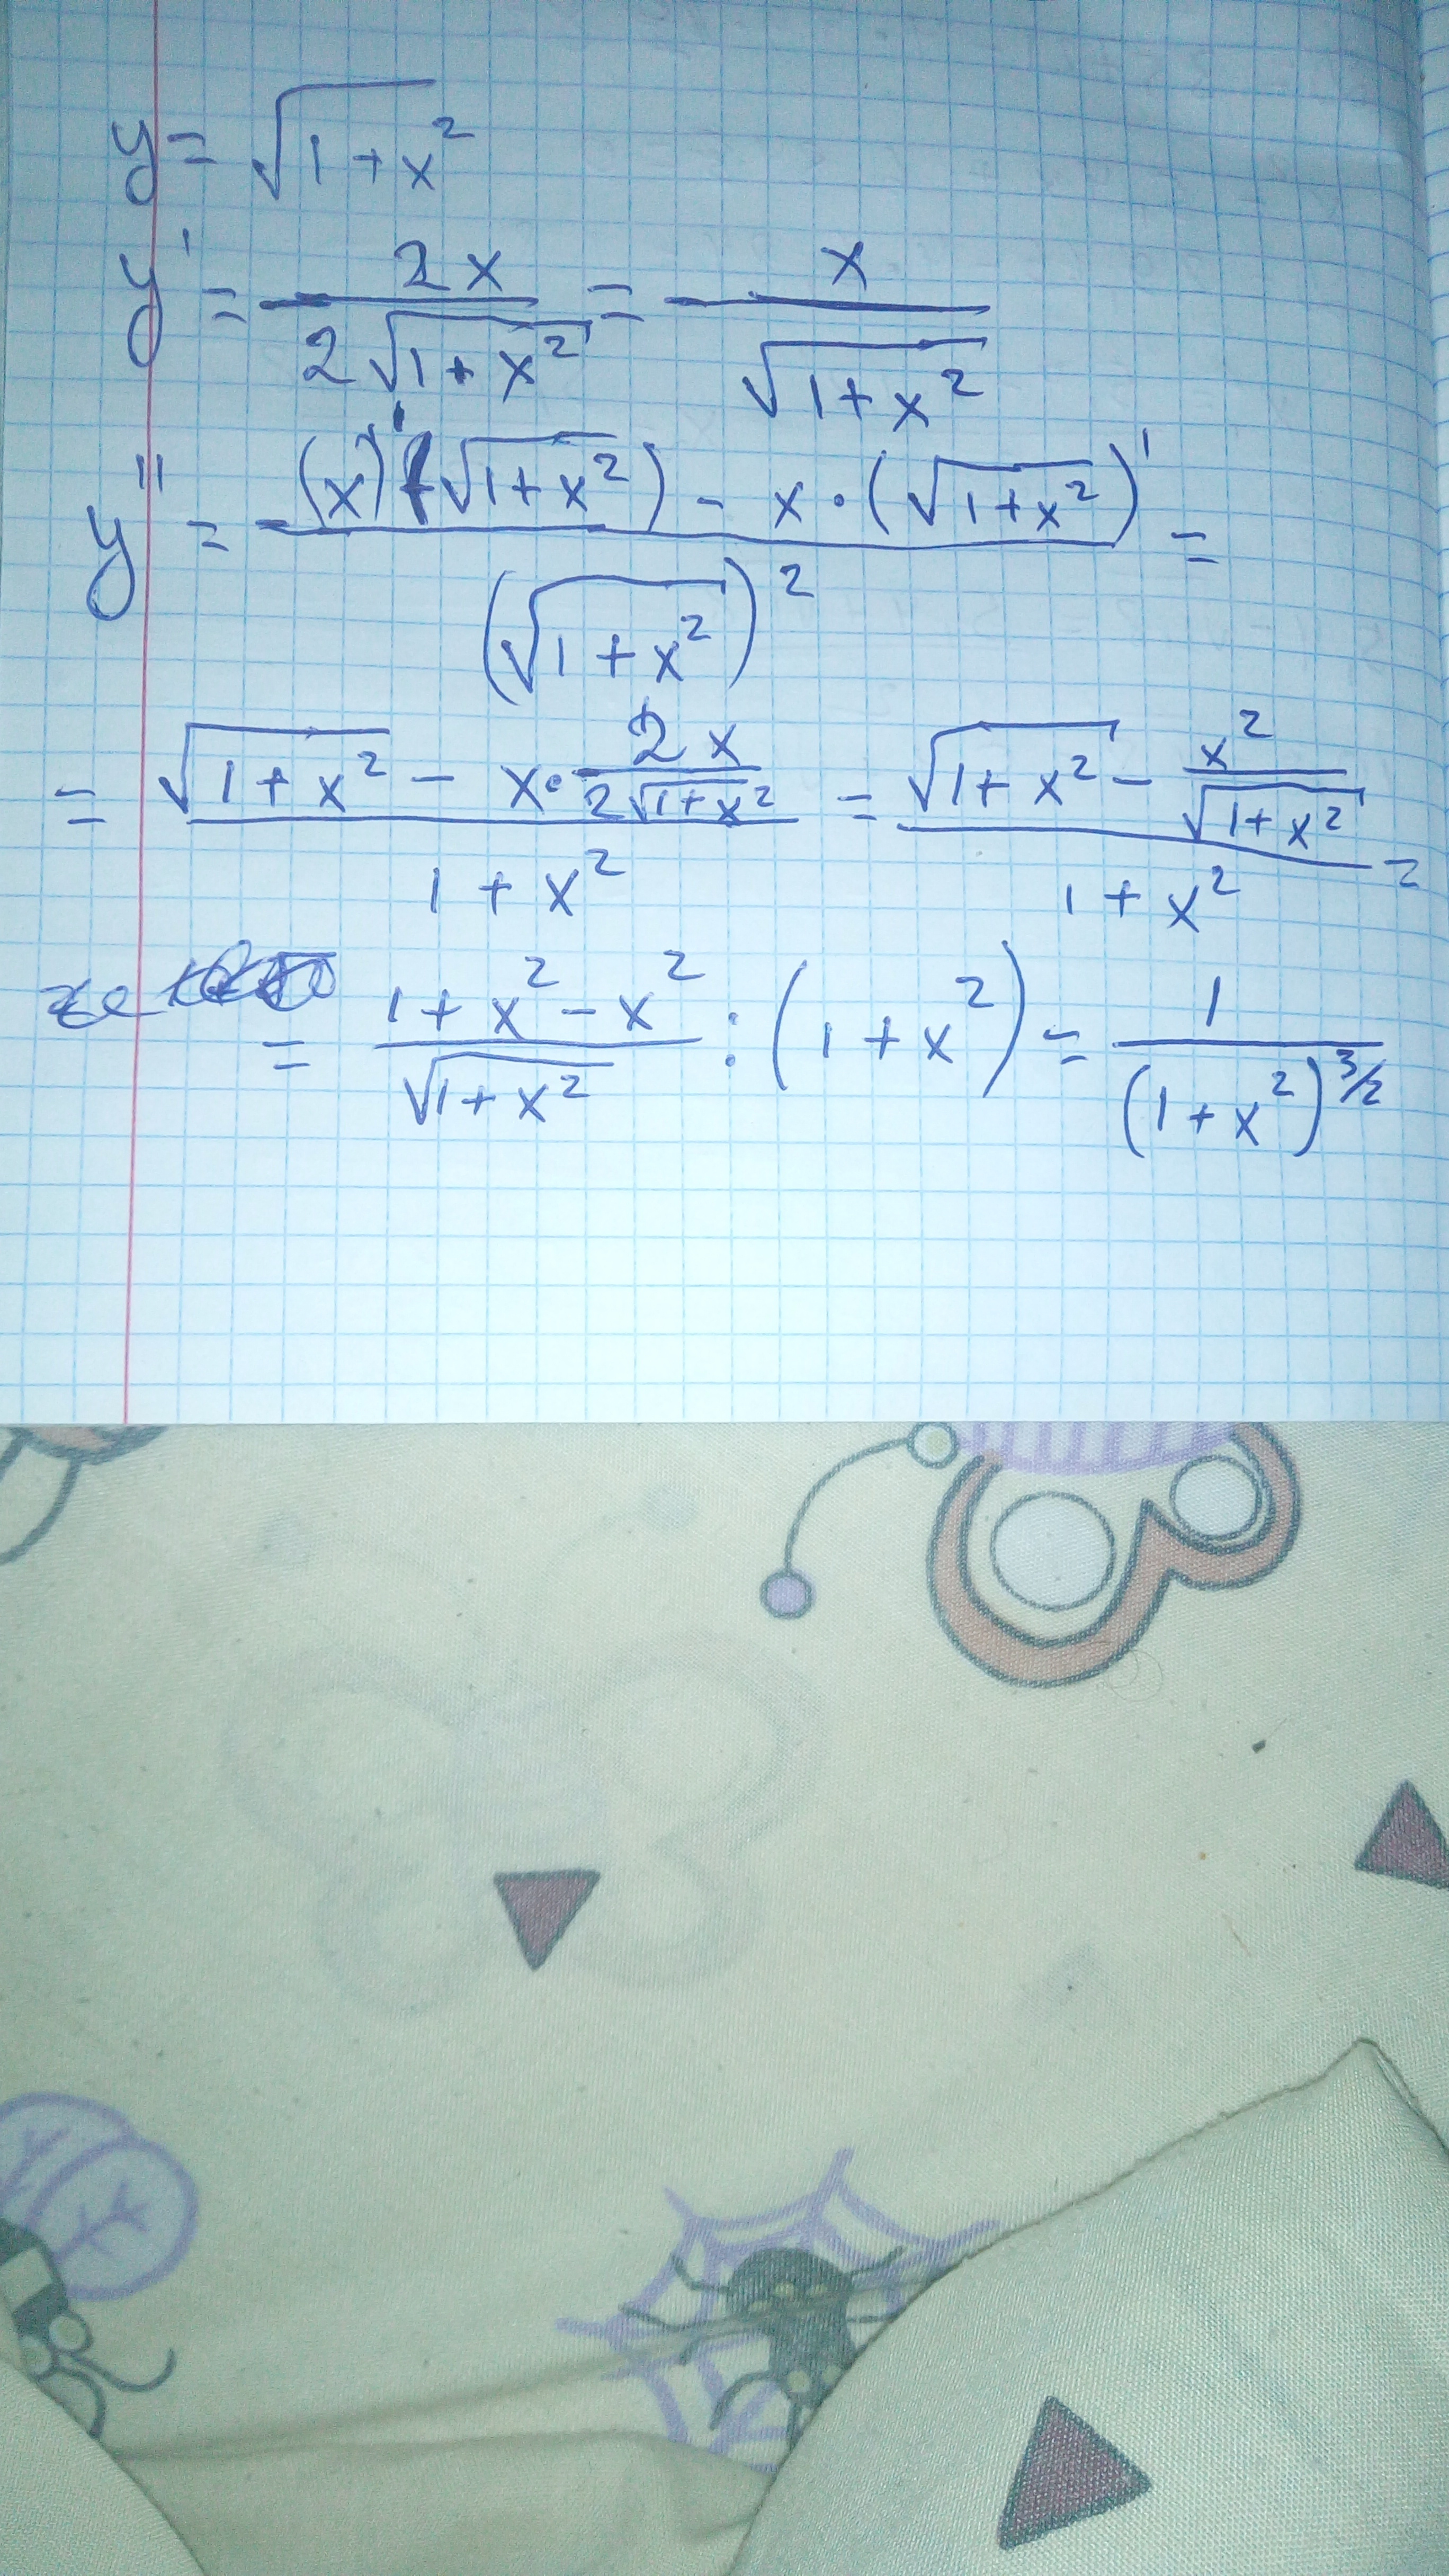 y = √(1+x²)
y' = 2x / (2√(1+x²)) = x / √(1+x²)
y'' = ((x)'(√(1+x²)) - x·(√(1+x²))') / (√(1+x²))² =
= (√(1+x²) - x·2x/(2√(1+x²))) / (1+x²) = (√(1+x²) - x²/√(1+x²)) / (1+x²) =
= (1+x²-x²)/√(1+x²) : (1+x²) = 1/(1+x²)^(3/2)